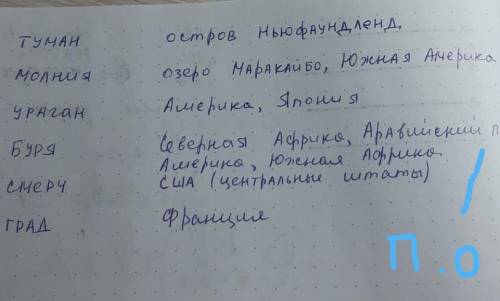 ТУМАН остров Ньюфаундленд.
МОЛНИЯ озеро Маракайбо, Южная Америка
УРАГАН Америка, Япония
БУРЯ Северная Африка, Аравийский п
Америка, Южная Африка
СМЕРЧ США (центральные штаты)
ГРАД Франция
П.О